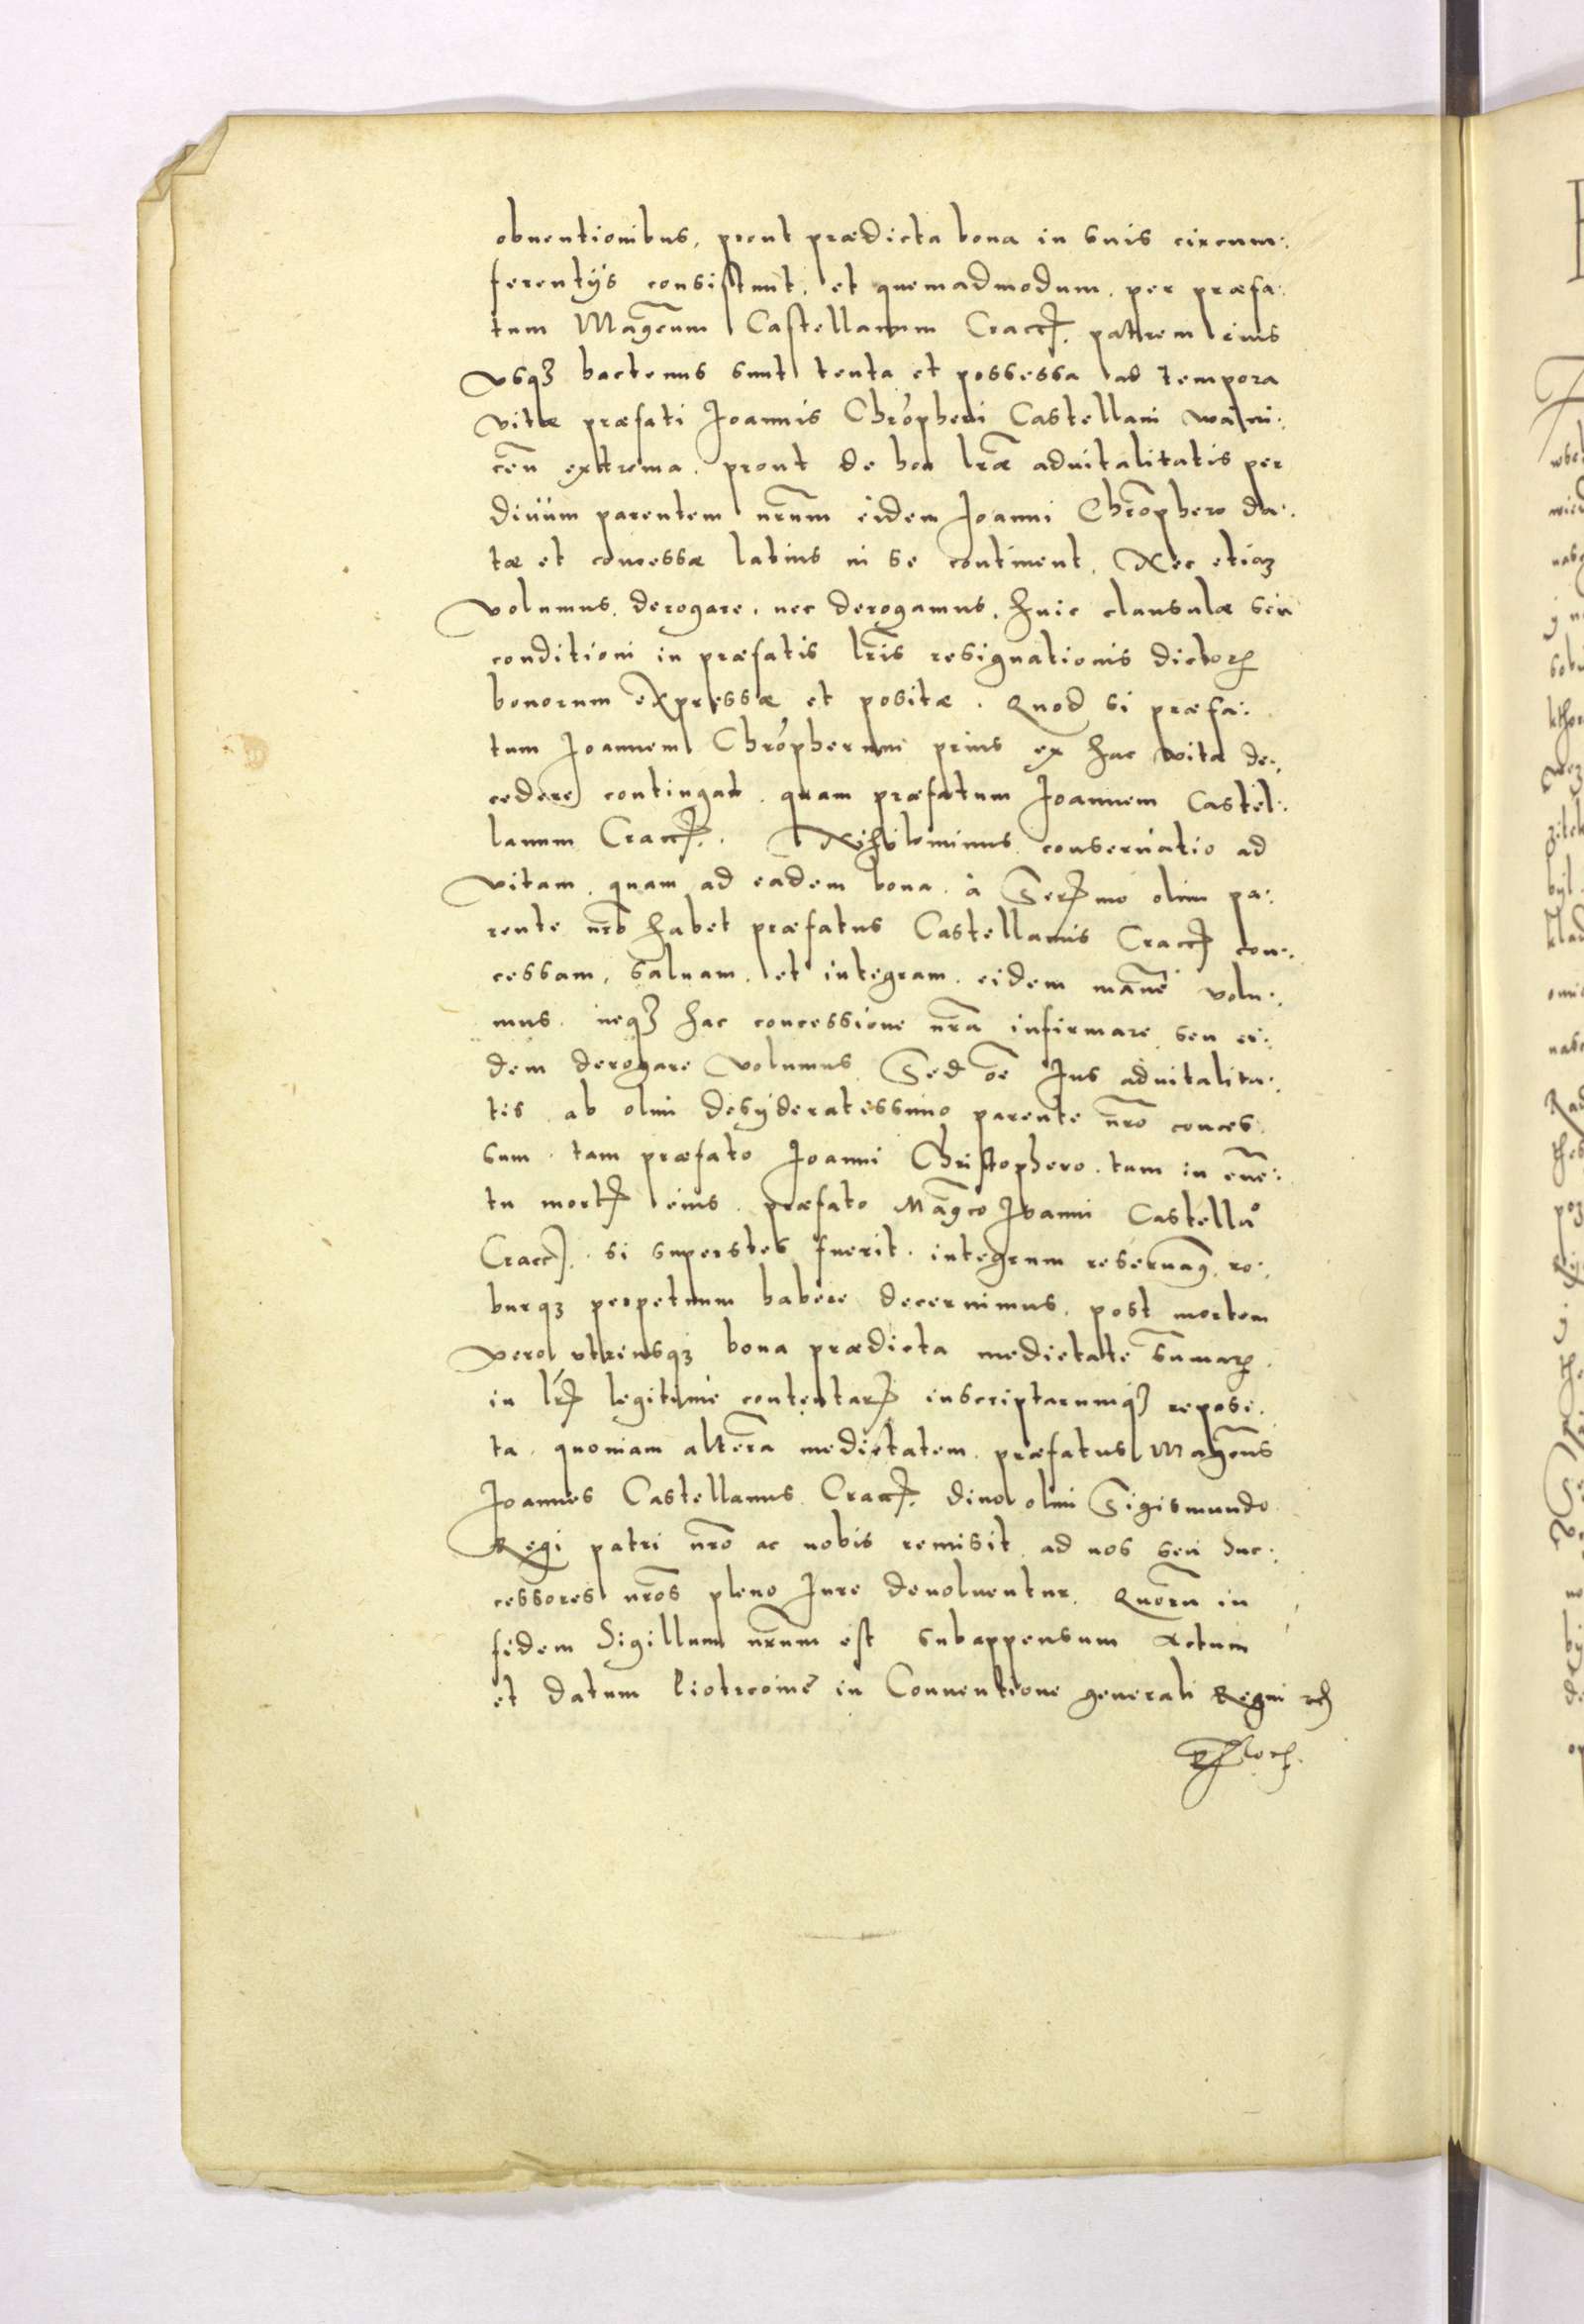 obuentionibus, prout prædicta bona in suis circum:
ferentijs consistunt, et quemadmodum per præfa:
tum Mag̃cum Castellanum Cracc̃. patrem eius
vsq₃ hactenus sunt tenta et possessa ad tempora
vitæ præfati Joannis Chrõpheri Castellani woini:
ceñ extrema. prout de hoc lræ̃ aduitalitatis per
diuum parentem nr̃um eidem Joanni Chrõphero da:
tæ et concessæ latius in se continent. Nec etia₃
volumus derogare, nec derogamus, huic clausulæ seu
conditioni in præfatis lr̃is resignationis dictoꝝ
bonorum expressæ et positæ. Quod si præfa:
tum Joannem Chrõpherum prius ex hac vita de:
cedere contingat, quam præfatum Joannem Castel:
lanum Cracc̃. Nihilominus conseruatio ad
vitam, quam ad eadem bona à Serꝭmo olim pa:
rente nr̃o habet præfatus Castellanus Cracc̃ con:
cessam, saluam et integram eidem manẽ volu:
mus. neq₃ hac concessione nr̃a infirmare seu ei:
dem derogare volumus. Sed oẽ Jus aduitalita:
tis ab olim desyderatissimo parente nr̃o conces
sum tam præfato Joanni Christophero. tum in euẽ:
tu mortꝭ eius. præfato Mag̃co Joanni Castellao
Cracc̃. si superstes fuerit. integrum reseruam9 ro:
burq₃ perpetuum habere decernimus. post mortem
vero vtriusq₃ bona prædicta medietate sum̃aꝝ
in lrꝭ legitime contentaꝝ inscriptarumq₃ reposi
ta. quoniam alterã medietatem præfatus Mag̃cus
Joannes Castellanus Cracc̃. diuo olim Sigismundo
Regi patri nr̃o ac nobis remisit ad nos seu suc:
cessores nr̃os pleno Jure deuoluentur. Quorũ in
fidem Sigillum nr̃um est subappensum Actum
et datum Piotrcouiẽ in Conuentione generali Regni